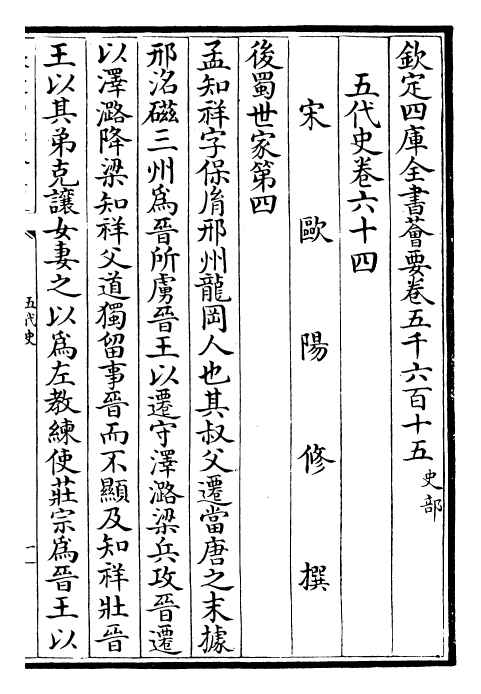 欽定四庫全書薈要卷五千六百十五 史部
五代史卷六十四
宋 歐 陽 修 撰
後蜀世家第四
孟知祥字保𦙍邢州龍岡人也其叔父遷當唐之末據
邢洺磁三州爲晉所虜晉王以遷守澤潞梁兵攻晉遷
以澤潞降梁知祥父道獨留事晉而不顯及知祥壯晉
王以其弟克讓女妻之以爲左教練使莊宗爲晉王以
五代史
一